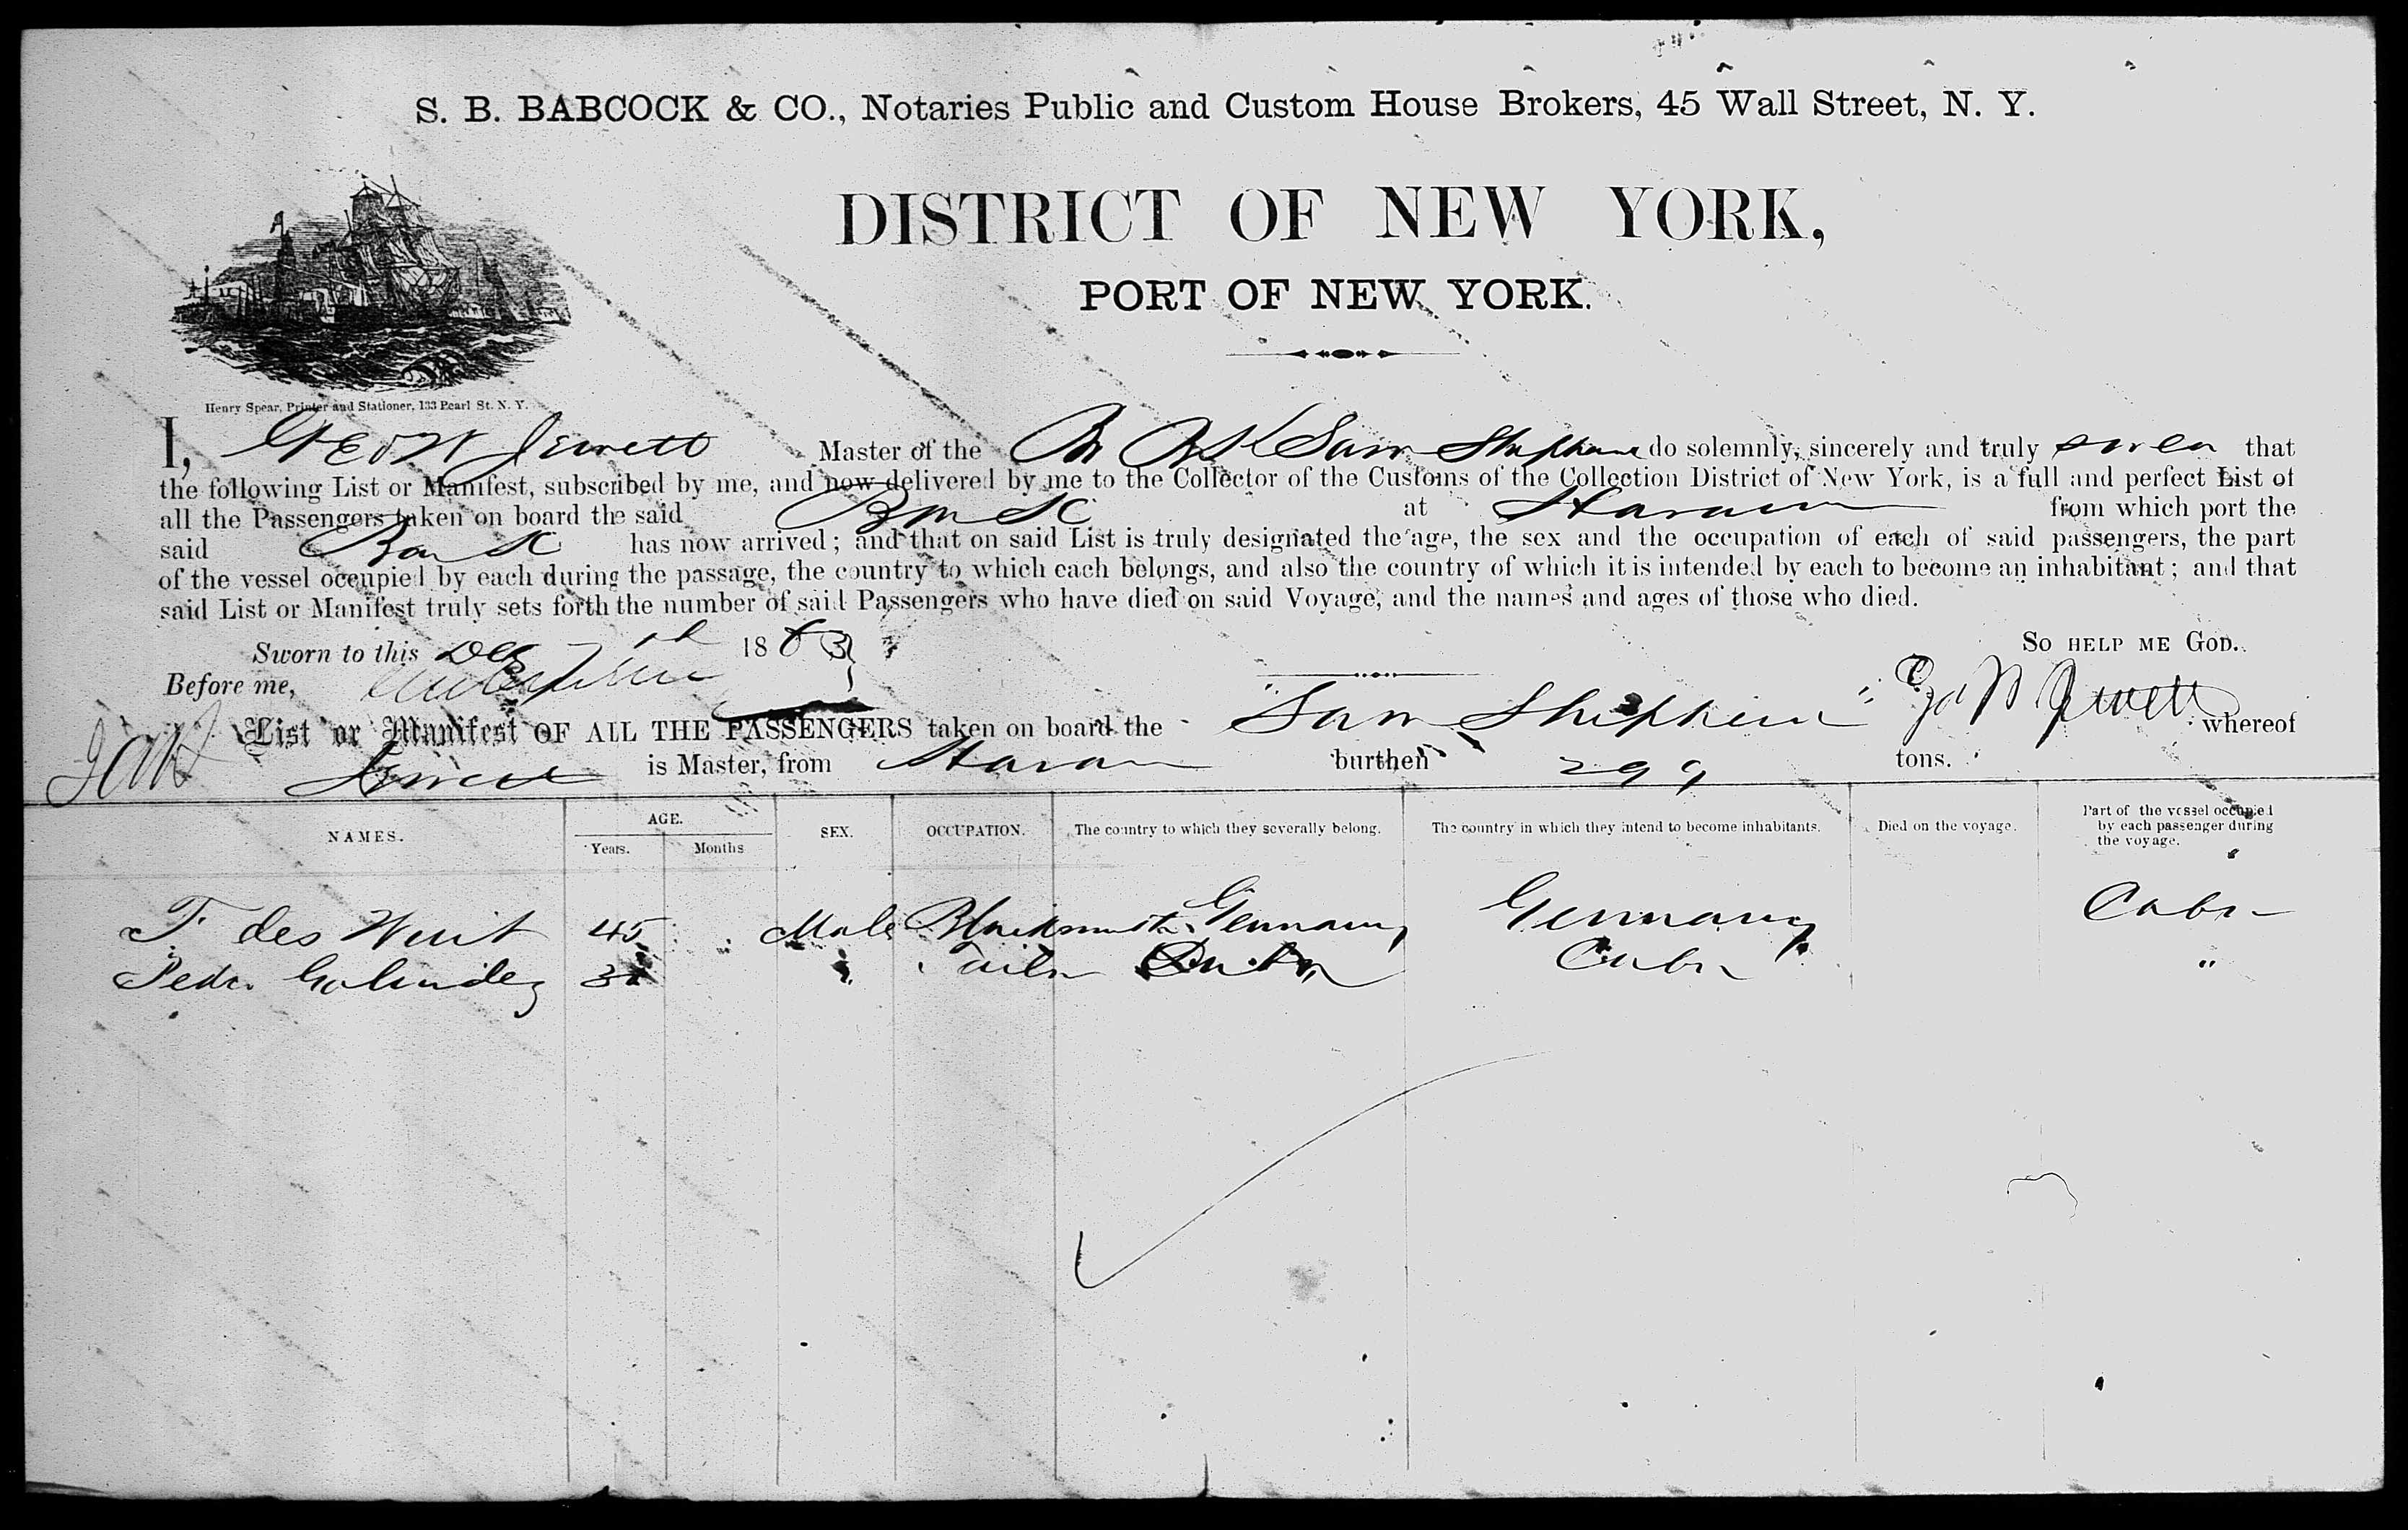 S. B. BABCOCK & CO., Notaries Public and Custom House Brokers, 45 Wall Street, N. Y.
DISTRICT OF NEW YORK,
PORT OF NEW YORK.
Henry Spear, Printer and Stationer, 133 Pearl St. N. Y.
I, Geo W Jewett Master of the Br Bk Sam Shephard do solemnly, sincerely and truly swear that
the following List or Manifest, subscribed by me, and now delivered by me to the Collector of the Customs of the Collection District of New York, is a full and perfect List of
all the Passengers taken on board the said Bark at Havana from which port the
said Bark has now arrived; and that on said List is truly designated the age, the sex and the occupation of each of said passengers, the part
of the vessel occupied by each during the passage, the country to which each belongs, and also the country of which it is intended by each to become an inhabitant; and that
said List or Manifest truly sets forth the number of said Passengers who have died on said Voyage, and the names and ages of those who died.
Sworn to this Dec 7th 1863
SO HELP ME GOD.
Before me,
Geo W Jewett
List or Manifest OF ALL THE PASSENGERS taken on board the "Sam Shephard" whereof
Jewett is Master, from Havana burthen 299 tons.
NAMES. AGE. Years. Months SEX. OCCUPATION. The country to which they severally belong. The country in which they intend to become inhabitants. Died on the voyage. Part of the vessel occupied by each passenger during the voyage.
F. des Wuit 45 Male Blacksmith Germany Germany Cabin
Pedro Galindez Tailor Cuba Cuba "